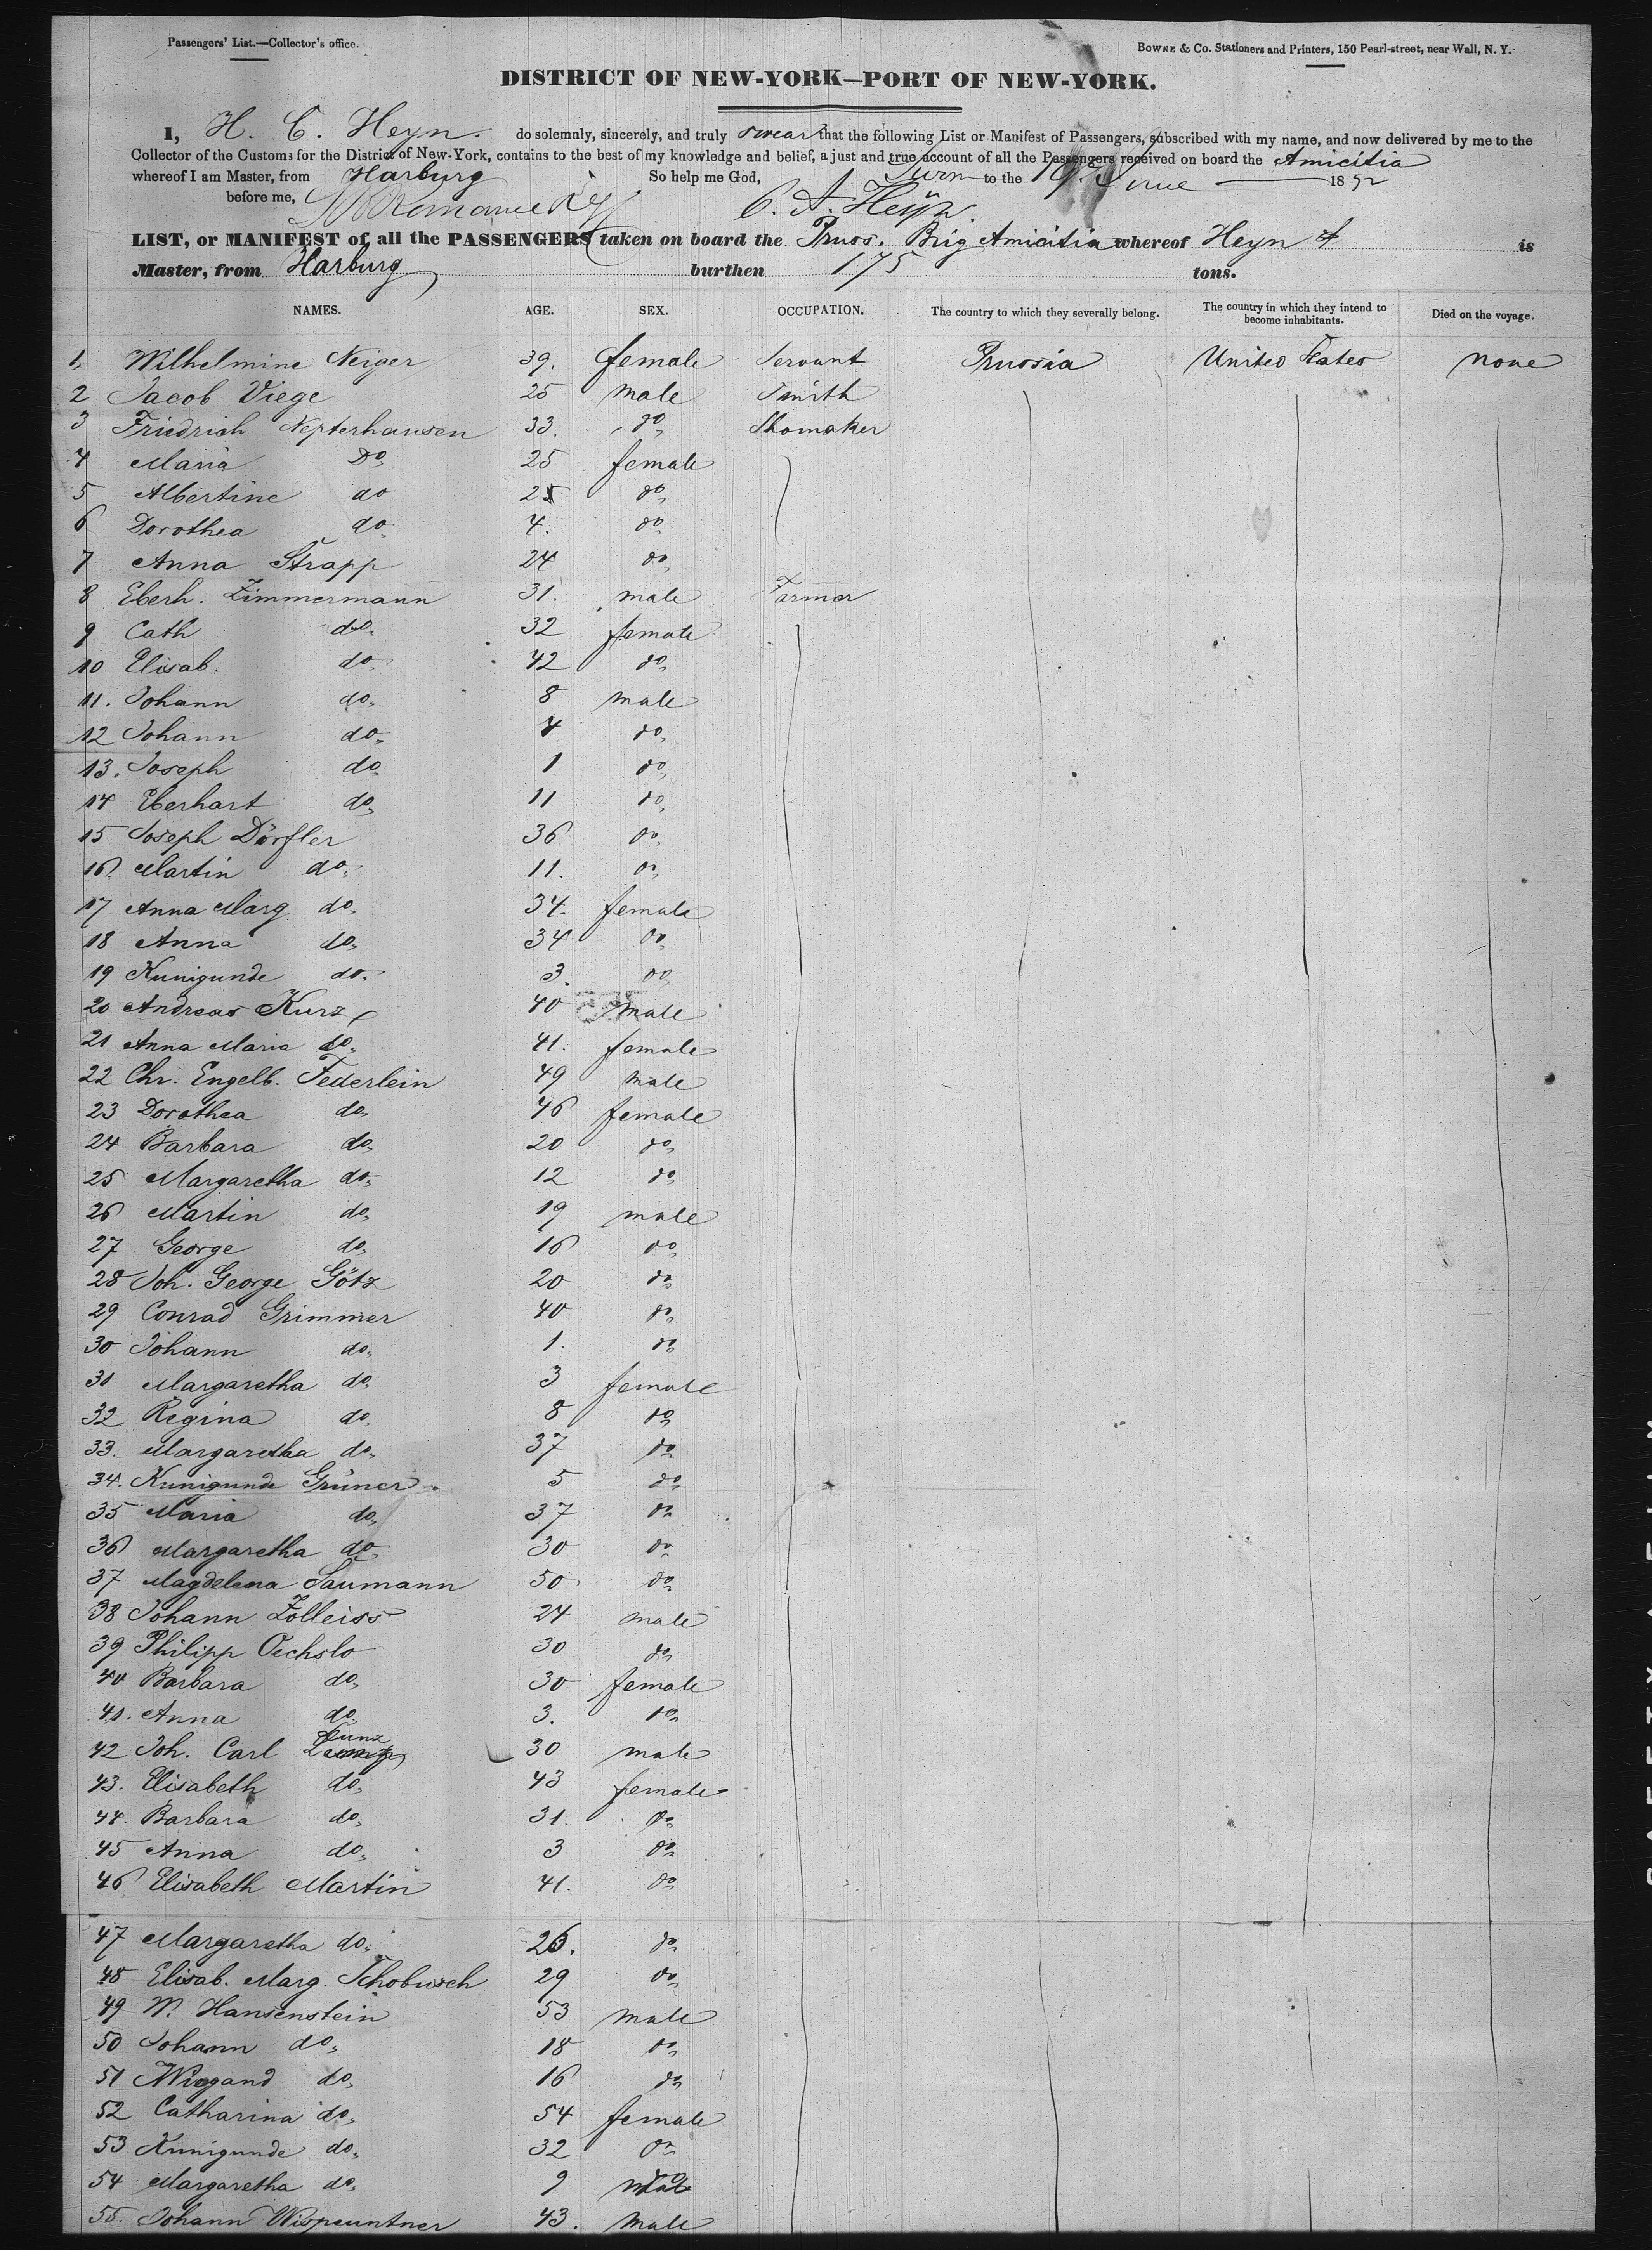 Passengers' List.—Collector's office.
BOWNE & Co. Stationers and Printers, 150 Pearl-street, near Wall, N. Y.
DISTRICT OF NEW-YORK—PORT OF NEW-YORK.
I, H. C. Heyn. do solemnly, sincerely, and truly swear that the following List or Manifest of Passengers, subscribed with my name, and now delivered by me to the
Collector of the Customs for the District of New-York, contains to the best of my knowledge and belief, a just and true account of all the Passengers received on board the Amicitia
whereof I am Master, from Harburg So help me God, to the 19 June 1852
before me,
LIST, or MANIFEST of all the PASSENGERS taken on board the Pruss. Brig Amicitia whereof Heyn is
Master, from Harburg burthen 175 tons.
NAMES. AGE. SEX. OCCUPATION. The country to which they severally belong. The country in which they intend to become inhabitants. Died on the voyage.
1, Wilhelmine Neiger 39. female Servant Prussia United States none
2 Jacob Viege 25 male Smith
3 Friedrich Nepterhausen 33. do, Shomaker
4 Maria Do, 25 female
5 Albertine do 2 do,
6 Dorothea do, 4. do,
7 Anna Strapp 24 do,
8 Eberh. Zimmermann 31. male Farmer
9 Cath do. 32 female
10 Elisab. do, 42 do,
11. Johann do, 8 male
12 Johann do, 4 do,
13. Joseph do 1 do,
14 Eberhart do, 11 do,
15 Joseph Dörfler 36 do,
16 Martin do, 11. do,
17 Anna Marg do, 34. female
18 Anna do, 34 do,
19 Kunigunde do. 3. do,
20 Andreas Kurz 40 male
21 Anna Maria do, 41. female
22 Chr. Engelb. Federlein 49 male
23 Dorothea do, 46 female
24 Barbara do, 20 do,
25 Margaretha do, 12 do,
26 Martin do, 19 male
27 George do, 16 do,
28 Joh. George Götz 20 do,
29 Conrad Grimmer 40 do,
30 Johann do, 1. do,
31 Margaretha do, 3 female
32 Regina do, 8 do,
33. Margaretha do, 37 do,
34. Kunigunde Grüner 5 do,
35 Maria do, 37 do,
36 Margaretha do, 30 do,
37 Magdelena Saumann 50 do,
38 Johann Zolleiss 24 male
39 Philipp Oechslo 30 do,
40 Barbara do, 30 female
41. Anna do, 3. do,
42 Joh. Carl Kunz 30 male
43. Elisabeth do, 43 female
44. Barbara do, 31. do,
45 Anna do, 3 do,
46 Elisabeth Martin 41. do,
47 Margaretha do, 26. do,
48 Elisab. Marg. Schobusch 29 do,
49 W. Hansenstein 53 male
50 Johann do, 18 do,
51 Wiegand do, 16 do,
52 Catharina do, 54 female
53 Kunigunde do, 32 do,
54 Margaretha do, 9 do
55 Johann Wispeuntner 43. male